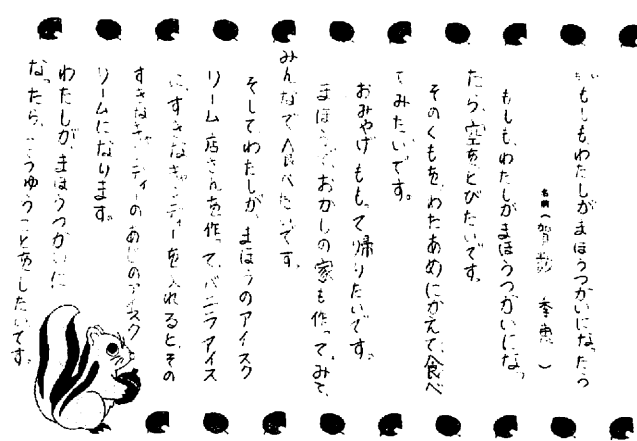 もしもわたしがまほうつかいになったら
名前(賀数 季恵)
もしも、わたしがまほうつかいになっ
たら、空をとびたいです。
そのくもを、わたあめにかえて、食べ
てみたいです。
おみやげももって帰りたいです。
まほうで、おかしの家も作ってみて、
みんなで食べたいです。
そしてわたしが、まほうのアイスク
リーム店さんを作って、バニラアイス
に、すきなキャンディーを入れると、その
すきなキャンディーのあじのアイスク
リームになります。
わたしが、まほうつかいに
なったら、こうゆうことをしたいです。